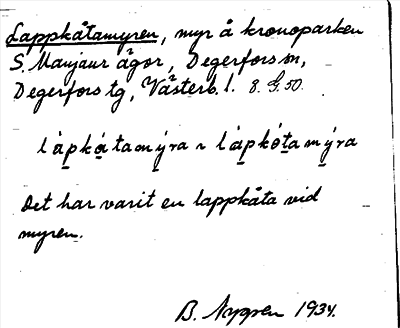 Lappkåtamyren, myr å kronoparken
S. Manjaur ägor, Degerfors sn,
Degerfors tg, Västerb. l. 8. G. 50.
l à p k ǻ t a m ý r a ~ l à p k ǿ t a m ý r a
Det har varit en lappkåta vid
myren.
B. Nygren 1934.